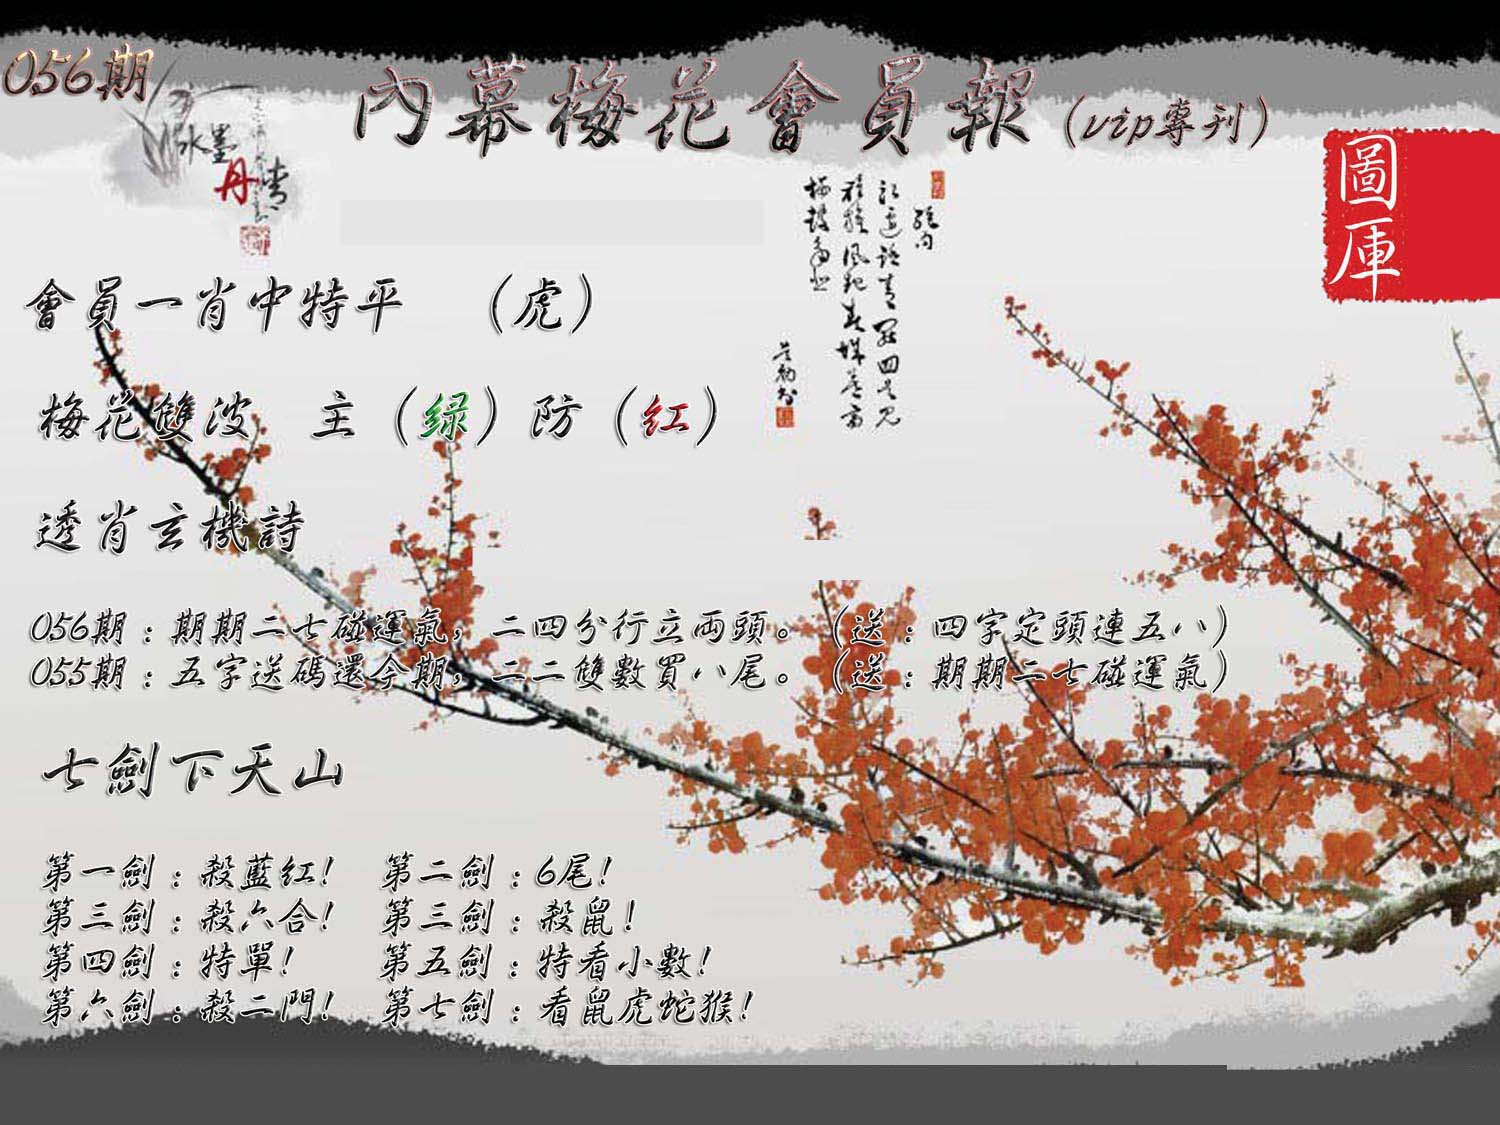 056期
內幕梅花會員報(vip專刊)
水墨
丹青
圖庫
會員一肖中特平 (虎)
梅花雙波 主(绿)防(红)
透肖玄機詩
056期:期期二七碰運氣,二四分行立両頭。(送:四字定頭連五八)
055期:五字送碼還今期,二二雙數買八尾。(送:期期二七碰運氣)
七劍下天山
第一劍:殺藍红! 第二劍:6尾!
第三劍:殺六合! 第三劍:殺鼠!
第四劍:特單! 第五劍:特看小數!
第六劍:殺二門! 第七劍:看鼠虎蛇猴!